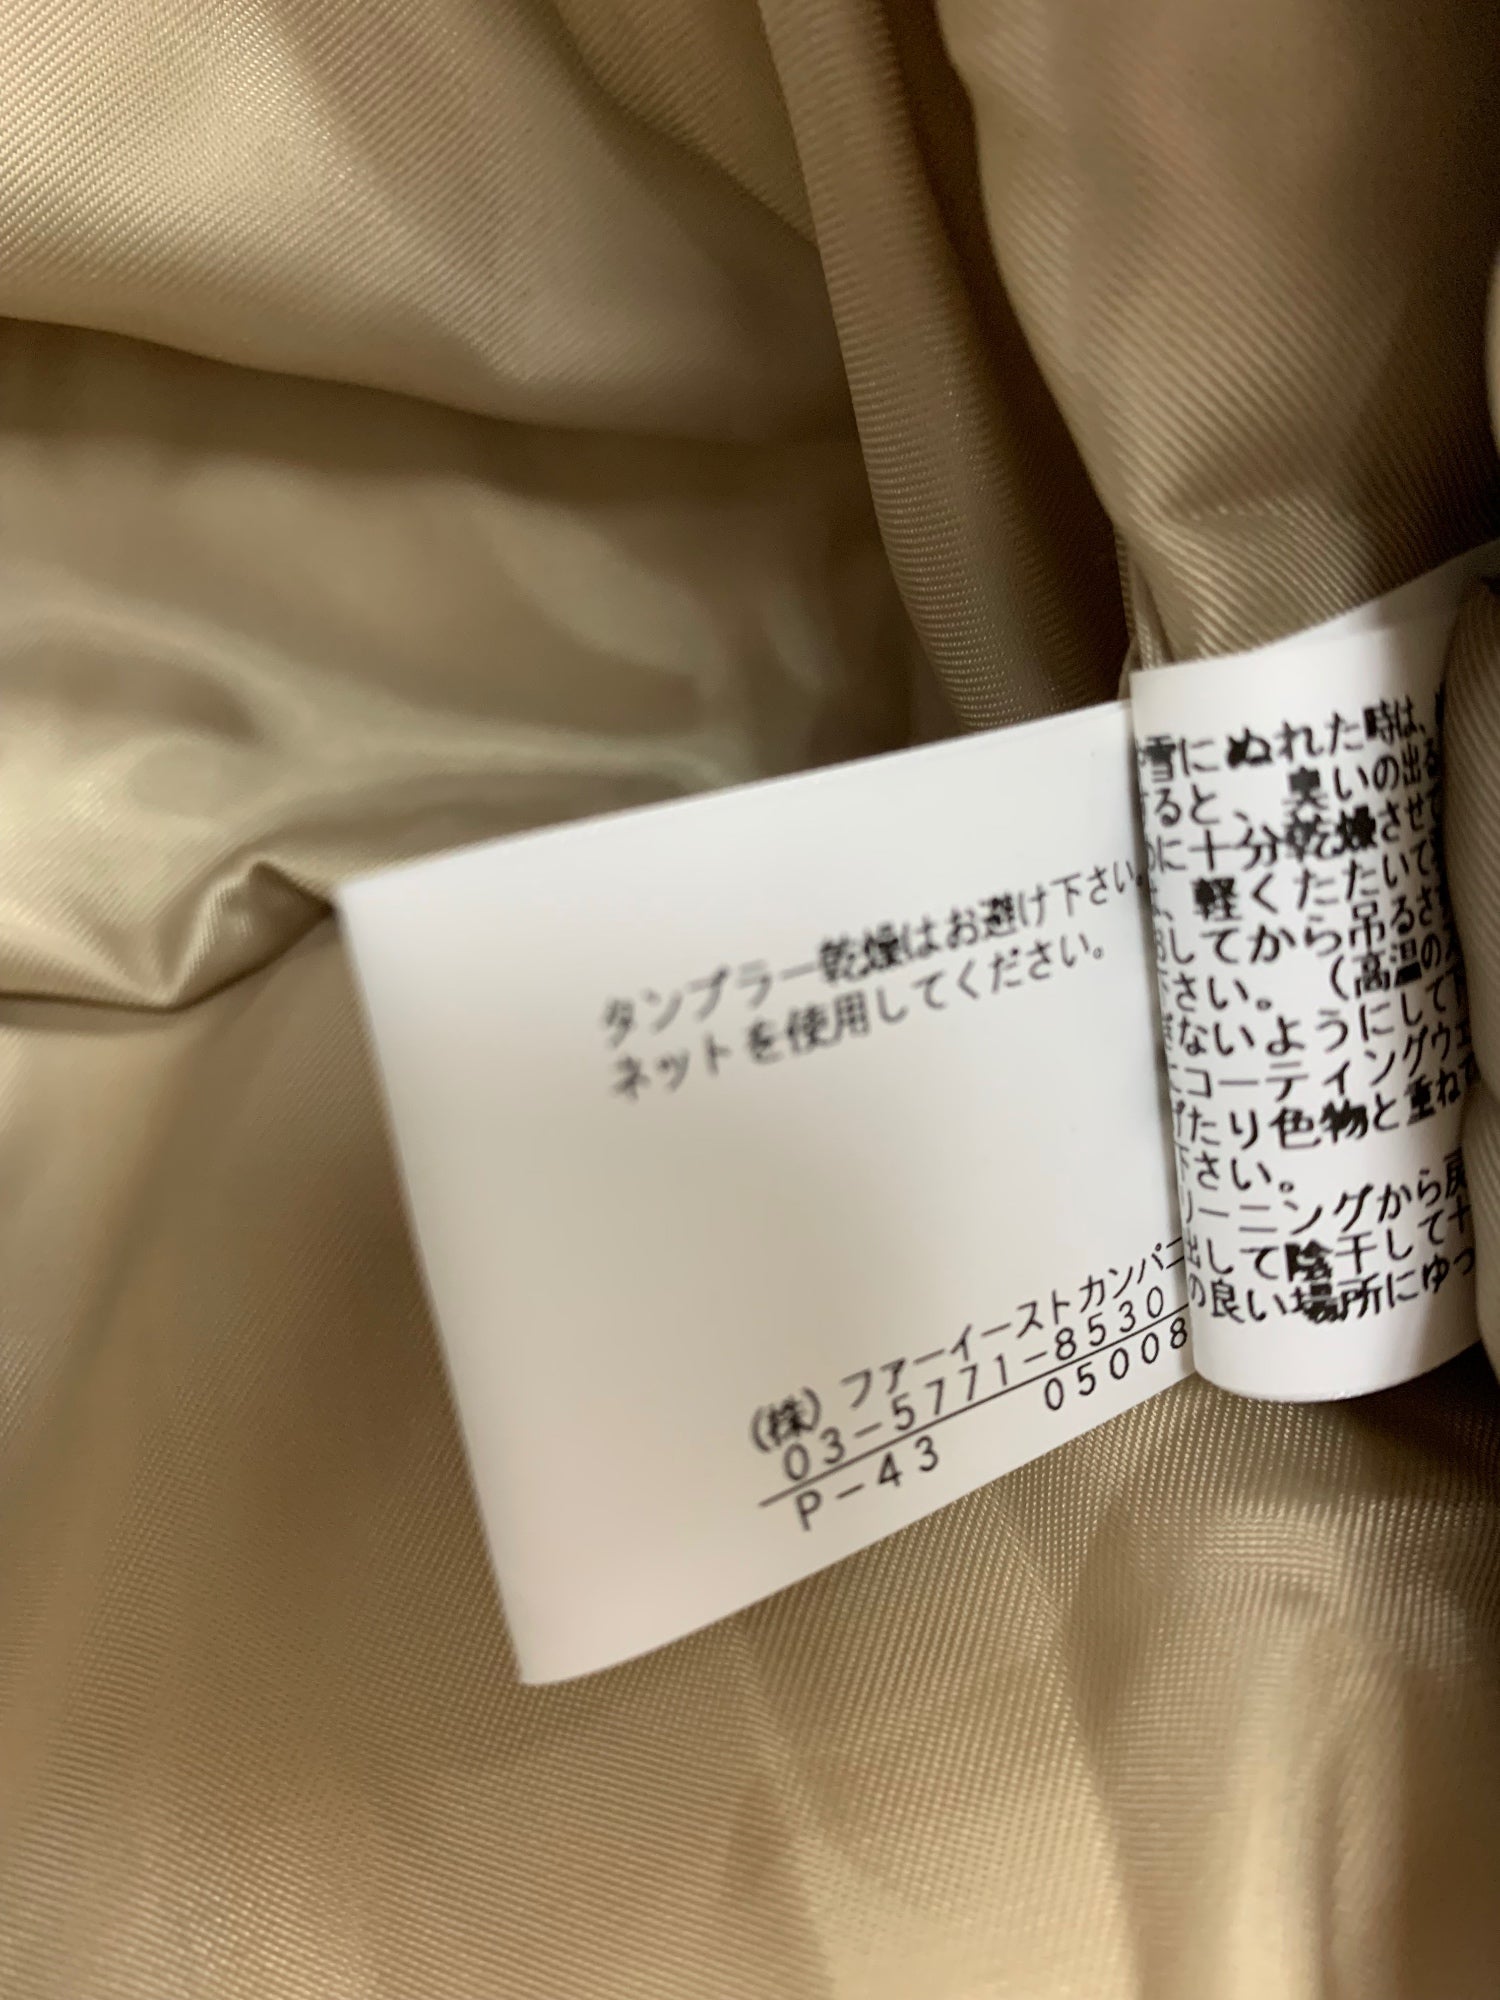 タンブラー乾燥はお避け下さい。
ネットを使用してください。
(株)ファーイーストカンパニ
03-5771-8530
05008
P-43
雪にぬれた時は、
ると、臭いの出る
に十分乾燥させて
軽くたたいて
してから吊るさ
さい。(高温の
ないようにして下
コーティングウエ
たり色物と重ねて
下さい。
リーニングから戻
出して陰干して十
の良い場所にゆっ